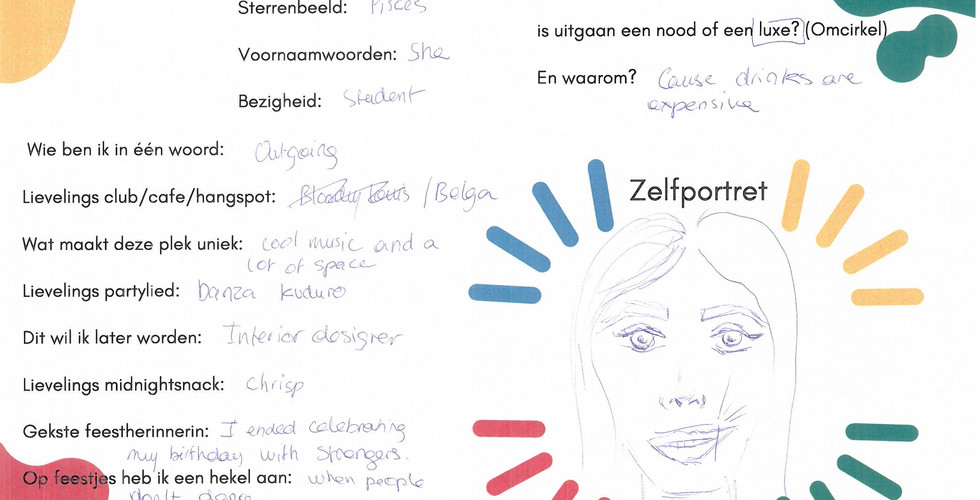 Sterrenbeeld: Pisces
Voornaamwoorden: She
Bezigheid: Student
Wie ben ik in één woord: Outgoing
Lievelings club/cafe/hangspot: Bloody Louis / Belga
Wat maakt deze plek uniek: cool music and a
lot of space
Lievelings partylied: Danza kuduro
Dit wil ik later worden: Interior designer
Lievelings midnightsnack: Chrisp
Gekste feestherinnerin: I ended celebrating
my birthday with strangers.
Op feestjes heb ik een hekel aan: when people
don't dance
is uitgaan een nood of een luxe? (Omcirkel)
En waarom? Cause drinks are
expensive
Zelfportret